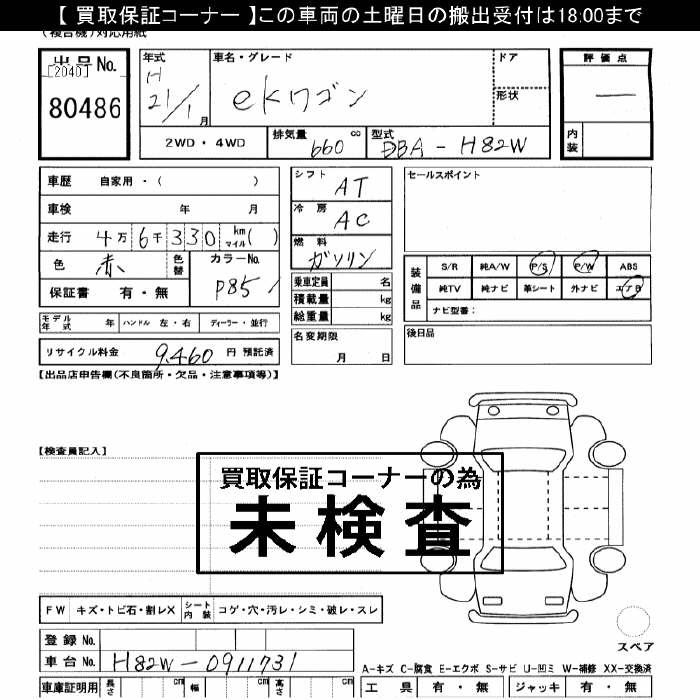 【 買取保証コーナー 】この車両の土曜日の搬出受付は18:00まで
(複合機)対応用紙
出品No.
[2040]
80486
年式
H
21/1月
車名・グレード
ekワゴン
ドア
形状
評価点
—
内装
2WD・4WD
排気量
660 cc
型式
DBA-H82W
車歴 自家用・( )
車検 年 月
走行 4万6千330 km マイル( )
色 赤 色替
カラーNo.
P85
保証書 有・無
シフト AT
冷房 AC
燃料 ガソリン
乗車定員 名
積載量 kg
総重量 kg
セールスポイント
装備品
S/R 純A/W P/S P/W ABS
純TV 純ナビ 革シート 外ナビ エアB
ナビ型番:
モデル年式 年 ハンドル 左・右 ディーラー・並行
名変期限
月 日
後日品
リサイクル料金 9,460 円 預託済
【出品店申告欄(不良箇所・欠品・注意事項等)】
【検査員記入】
買取保証コーナーの為
未検査
FW キズ・トビ石・割レX シート内装 コゲ・穴・汚レ・シミ・破レ・スレ
スペア
登録 No.
車台 No. H82W-0911731
A-キズ C-腐食 E-エクボ S-サビ U-凹ミ W-補修 XX-交換済
車庫証明用 長さ cm 幅 cm 高さ cm
工具 有・無 ジャッキ 有・無